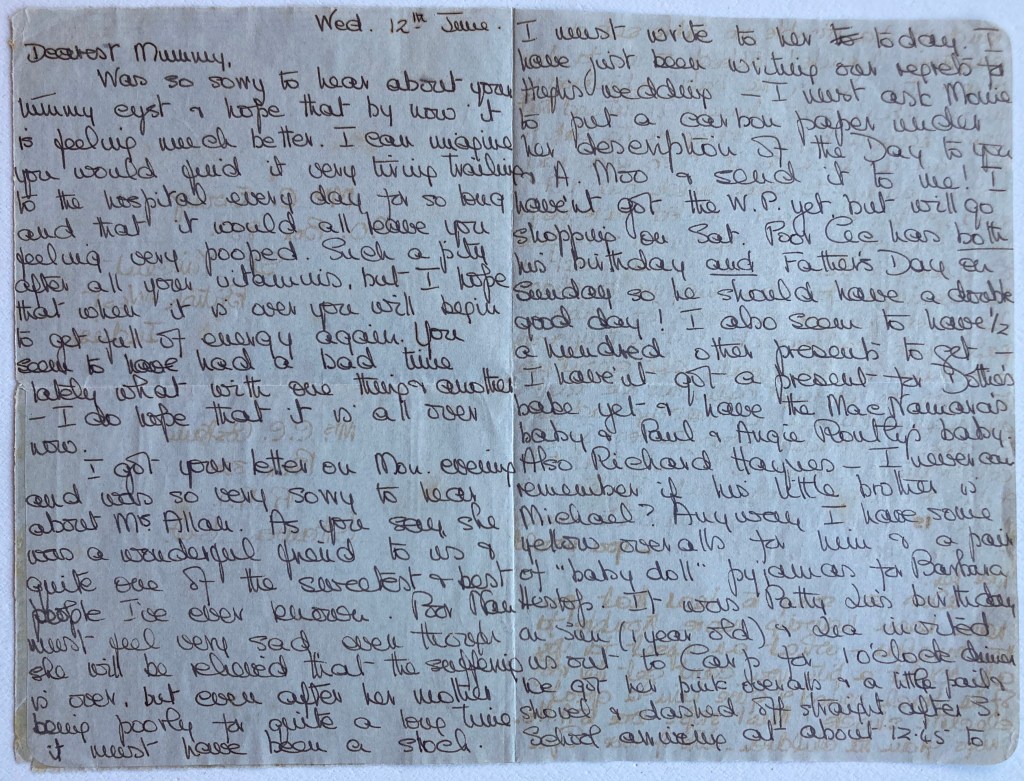 Wed. 12th June.
Dearest Mummy,
Was so sorry to hear about your
mummy eyst & hope that by now it
is feeling much better. I can imagine
you would find it very tiring trailing
to the hospital every day for so long
and that it would all leave you
feeling very pooped. Such a pity
after all your vitamins, but I hope
that when it is over you will begin
to get full of energy again. You
seem to have had a bad time
lately what with one thing & another
– I do hope that it is all over
now.
I got your letter on Mon. evening
and was so very sorry to hear
about Mrs Allan. As you say, she
was a wonderful friend to us &
quite one of the sweetest & best
people I've ever known. Poor Nan
must feel very sad even though
she will be relieved that the suffering
is over, but even after her mother
being poorly for quite a long time
it must have been a shock.
I must write to her to today. I
have just been writing our regrets for
wedding – I must ask
to put a carbon paper under
her description of the Day to you
& A. Moo & send it to me! I
have'nt got the W.P. yet but will go
shopping on Sat. Poor Cec has both
his birthday and Father's Day on
Sunday so he should have a double
good day! I also seem to have 1/2
a hundred other presents to get –
I have'nt got a present for Dottie's
babe yet & have the MacNamara's
baby & Paul & Angie baby.
Also Richard Haynes – I never can
remember if his little brother is
Michael? Anyway I have some
yellow overalls for him & a pair
of "baby doll" pyjamas for Barbara
Heslop. It was Patty birthday
on Sun (1 year old) & invited
us out to Carp for 1 o'clock dinner
We got her pink overalls & a little pail &
shovel & dashed off straight after S.
School arriving at about 12.45 to